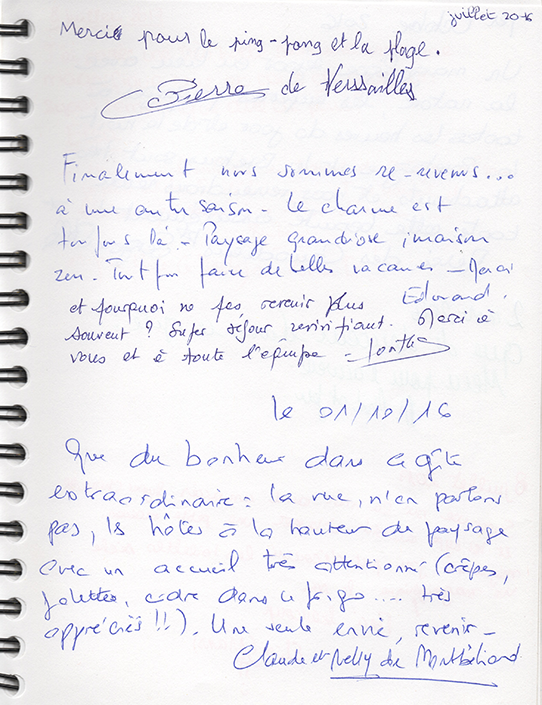 juillet 2016
Merci pour le ping-pong et la plage.
Pierre de Verssailles
Finalement nous sommes re-revenus...
à une autre saison - Le charme est
toujours là - Paysage grandiose, maison
zen. Tout pour faire de belles vacances - Merci
Edouard.
et pourquoi ne pas revenir plus
souvent ? Super séjour revivifiant. Merci à
vous et à toute l'équipe -
le 01/10/16
Que du bonheur dans ce gîte
extraordinaire : la vue, n'en parlons
pas, ls hôtes à la hauteur du paysage
avec un accueil très attentionné (crêpes,
galettes, cidre dans le frigo .... très
appréciés !!). Une seule envie, revenir -
Claude et Nelly de Montbéliard